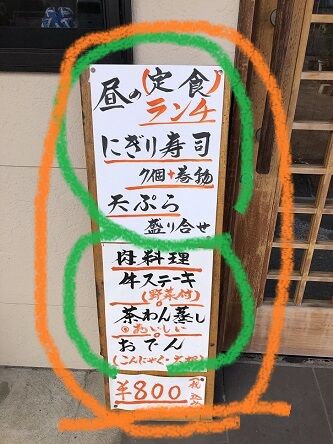 昼の(定食)
ランチ
にぎり寿司
7個+巻物
天ぷら
盛り合せ
肉料理
牛ステーキ
(野菜付)
茶わん蒸し
おいしい
おでん
(こんにゃく・大根)
¥800
(税込み)